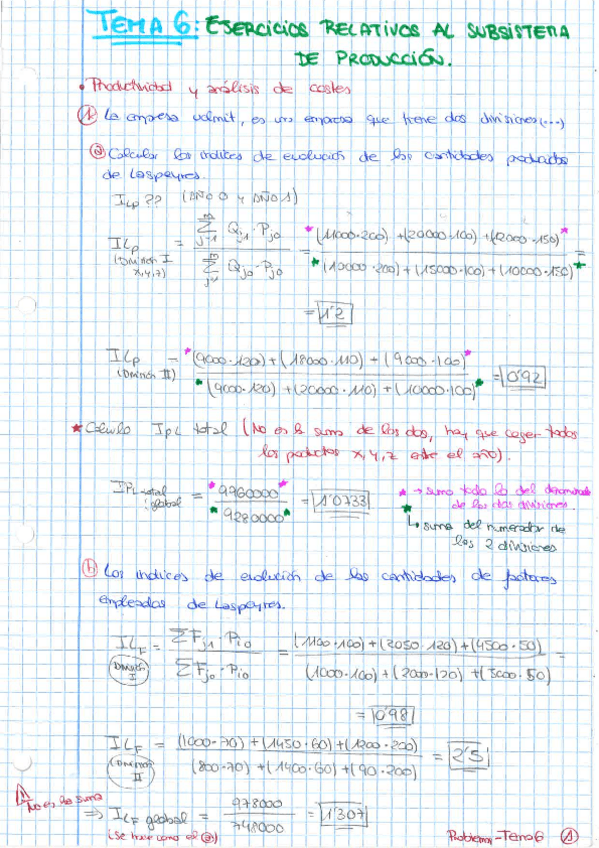 TEMA 6: EJERCICIOS RELATIVOS AL SUBSISTEMA
DE PRODUCCIÓN.
• Productividad y análisis de costes
① La empresa udmit, es una empresa que tiene dos divisiones (...)
ⓐ Calcular los índices de evolución de las cantidades producidas
de Laspeyres.
ILp ?? (AÑO 0 y AÑO 1)
ILp (División I x, y, z) = Σ Qj1 · Pj0 / Σ Qj0 · Pj0 = *(11000·200) + (20000·100) + (12000·150)* / *(10000·200) + (15000·100) + (10000·150)* =
= 1'2
ILp (División II) = *(9000·120) + (18000·110) + (9000·100)* / *(9000·120) + (20000·110) + (10000·100)* = 0'92
* Cálculo IpL total (No es la suma de los dos, hay que coger todos
los productos x, y, z este el año).
IPL total global = *9960000* / *9280000* = 1'0733
* → suma todo lo del denominador
de las dos divisiones.
* ↳ suma del numerador de
las 2 divisiones
ⓑ Los índices de evolución de las cantidades de factores
empleadas de Laspeyres.
ILF (División I) = ΣFj1 · Pi0 / ΣFj0 · Pi0 = (1100·100) + (2050·120) + (4500·50) / (1000·100) + (2000·120) + (5000·50) =
= 0'98
ILF (División II) = (1000·70) + (1450·60) + (1200·200) / (800·70) + (1400·60) + (90·200) = 2'5
⚠ No es la suma
⇒ ILF global = 978000 / 748000 = 1'307
(se hace como el ⓐ)
Problemas - Tema 6 ①